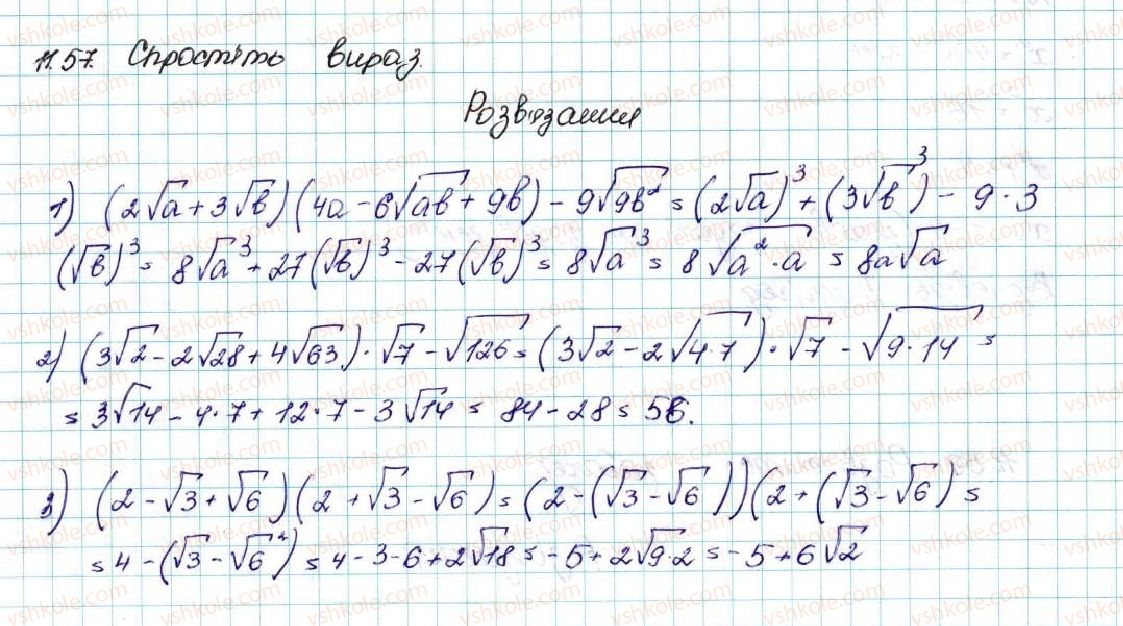 11.57. Спростіть вираз.
Розв'язання
1) (2√a + 3√b)(4a - 6√ab + 9b) - 9√9b² = (2√a)³ + (3√b)³ - 9 · 3
(√b)³ = 8√a³ + 27(√b)³ - 27(√b)³ = 8√a³ = 8√a²·a = 8a√a
2) (3√2 - 2√28 + 4√63) · √7 - √126 = (3√2 - 2√4·7) · √7 - √9·14 =
= 3√14 - 4·7 + 12·7 - 3√14 = 84 - 28 = 56.
3) (2 - √3 + √6)(2 + √3 - √6) = (2 - (√3 - √6))(2 + (√3 - √6) =
= 4 - (√3 - √6²) = 4 - 3 - 6 + 2√18 = - 5 + 2√9·2 = - 5 + 6√2